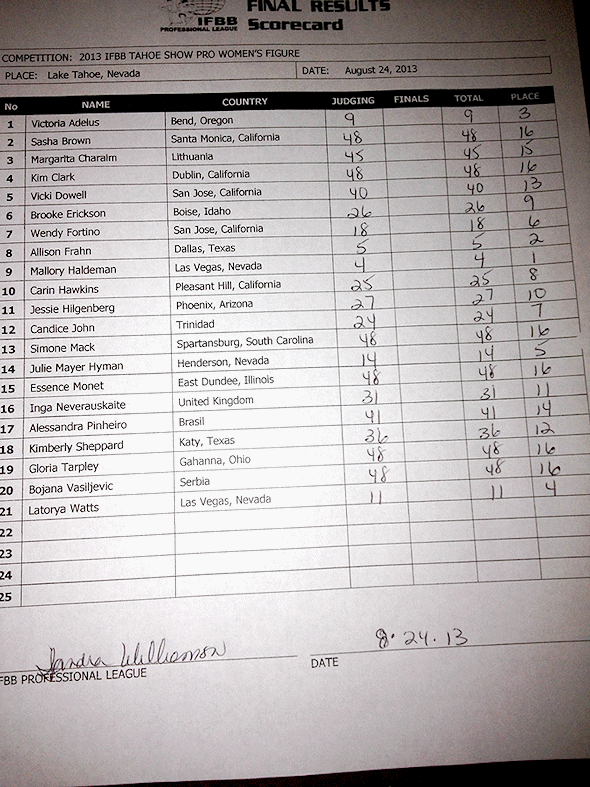 FINAL RESULTS
IFBB Scorecard
PROFESSIONAL LEAGUE
COMPETITION: 2013 IFBB TAHOE SHOW PRO WOMEN'S FIGURE
PLACE: Lake Tahoe, Nevada DATE: August 24, 2013
No NAME COUNTRY JUDGING FINALS TOTAL PLACE
1 Victoria Adelus Bend, Oregon 9 9 3
2 Sasha Brown Santa Monica, California 48 48 16
3 Margarita Charalm Lithuania 45 45 15
4 Kim Clark Dublin, California 48 48 16
5 Vicki Dowell San Jose, California 40 40 13
6 Brooke Erickson Boise, Idaho 26 26 9
7 Wendy Fortino San Jose, California 18 18 6
8 Allison Frahn Dallas, Texas 5 5 2
9 Mallory Haldeman Las Vegas, Nevada 4 4 1
10 Carin Hawkins Pleasant Hill, California 25 25 8
11 Jessie Hilgenberg Phoenix, Arizona 27 27 10
12 Candice John Trinidad 24 24 7
13 Simone Mack Spartansburg, South Carolina 48 48 16
14 Julie Mayer Hyman Henderson, Nevada 14 14 5
15 Essence Monet East Dundee, Illinois 48 48 16
16 Inga Neverauskaite United Kingdom 31 31 11
17 Alessandra Pinheiro Brasil 41 41 14
18 Kimberly Sheppard Katy, Texas 36 36 12
19 Gloria Tarpley Gahanna, Ohio 48 48 16
20 Bojana Vasiljevic Serbia 48 48 16
21 Latorya Watts Las Vegas, Nevada 11 11 4
22
23
24
25
Sandra Williamson 8.24.13
FBB PROFESSIONAL LEAGUE DATE